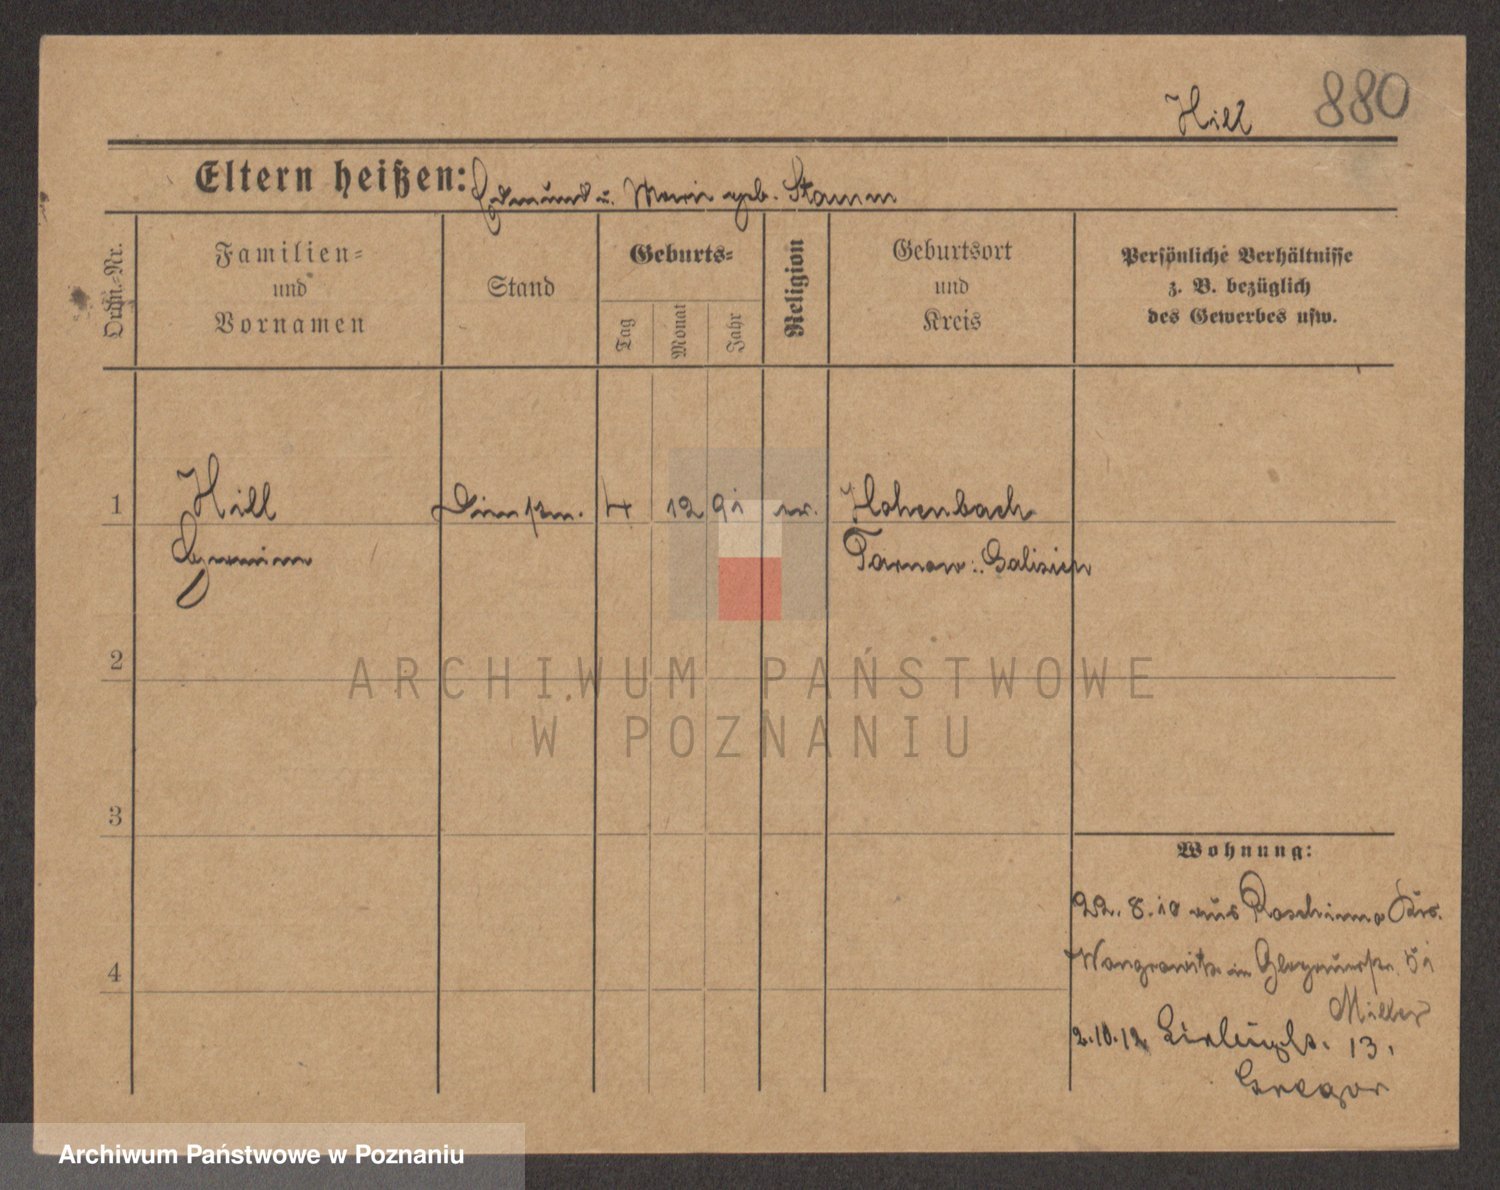 Hill 880
Eltern heißen: Edmund u. Marie geb. Stamm
Ordn.-Nr.
Familien=
und
Vornamen
Stand
Geburts=
Tag
Monat
Jahr
Religion
Geburtsort
und
Kreis
Persönliche Verhältnisse
z. B. bezüglich
des Gewerbes usw.
1 Hill 4 12 91 Hohenbach
Tarnow: Galizien
2
3
4
Wohnung:
22. 8. 10 aus Kreis
Wongrowitz in 51
Miller
2.10.12 13.
Gregor
ARCHIWUM PAŃSTWOWE
W POZNANIU
Archiwum Państwowe w Poznaniu